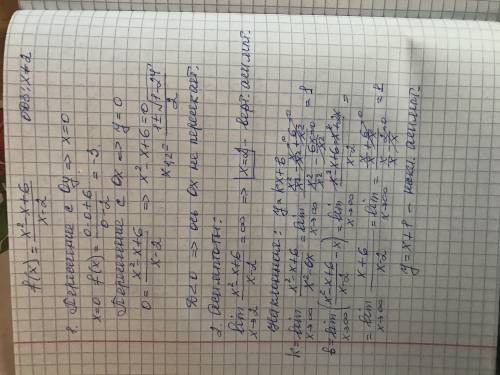 f(x) = (x²-x+6)/(x-2)   ООЗ: x≠2
1. Пересечение с Oy => x=0
x=0 f(x) = (0-0+6)/(0-2) = -3
Пересечение с Ox => y=0
0 = (x²-x+6)/(x-2) => x²-x+6=0
x₁,₂ = (1±√(1-24))/2
D<0 => ось Ox не пересекает.
2. Асимптоты:
lim x→2 (x²-x+6)/(x-2) = ∞ => x=2 - верт. асимпт.
Наклонная: y=kx+b
k = lim x→∞ (x²-x+6)/(x²-2x) = lim x→∞ (x²/x² - x/x² + 6/x²)/(x²/x² - 2x/x²) = 1
b = lim x→∞ ((x²-x+6)/(x-2) - x) = lim x→∞ (x²-x+6-x²+2x)/(x-2) =
= lim x→∞ (x+6)/(x-2) = lim x→∞ (x/x + 6/x)/(x/x - 2/x) = 1
y = x+1 - накл. асимпт.